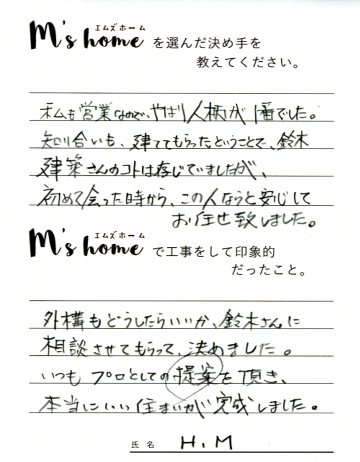 エムズホーム
M's home を選んだ決め手を
教えてください。
私も営業なので、やはり人柄が1番でした。
知り合いも、建ててもらったということで、鈴木
建築さんのコトは存じていましたが、
初めて会った時から、この人なら と安心して
お任せ致しました。
エムズホーム
M's home で工事をして印象的
だったこと。
外構もどうしたらいいか、鈴木さんに
相談させてもらって、決めました。
いつも プロとしての提案を頂き、
本当にいい住まいが完成しました。
氏名 H.M